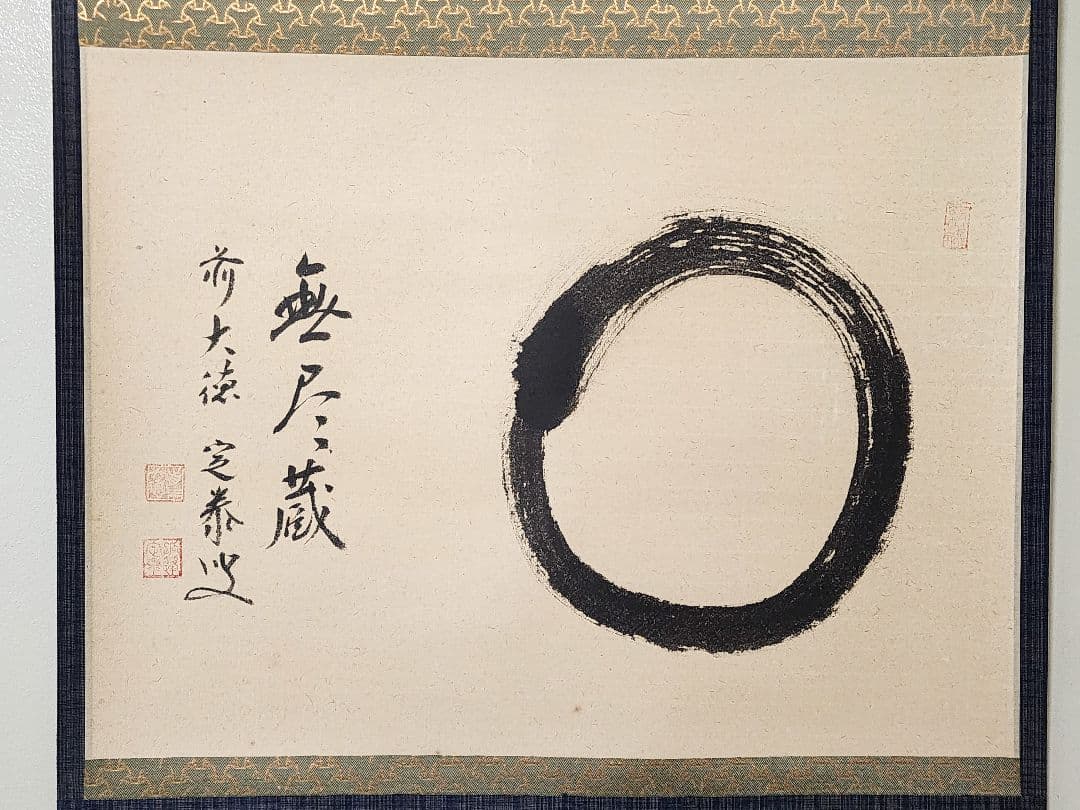 無尽蔵
前大徳 定泰叟